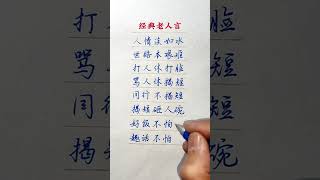 经典老人言
人情淡如水
世路本艰难
打人休打脸
骂人休揭短
同行不揭短
揭短砸人碗
好饭不怕
趣话不怕